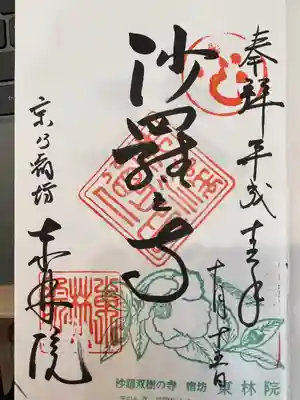 奉拝 平成 年 十月 日
沙羅之寺
京乃宿坊
東林院
東林院
沙羅双樹の寺 宿坊 東林院